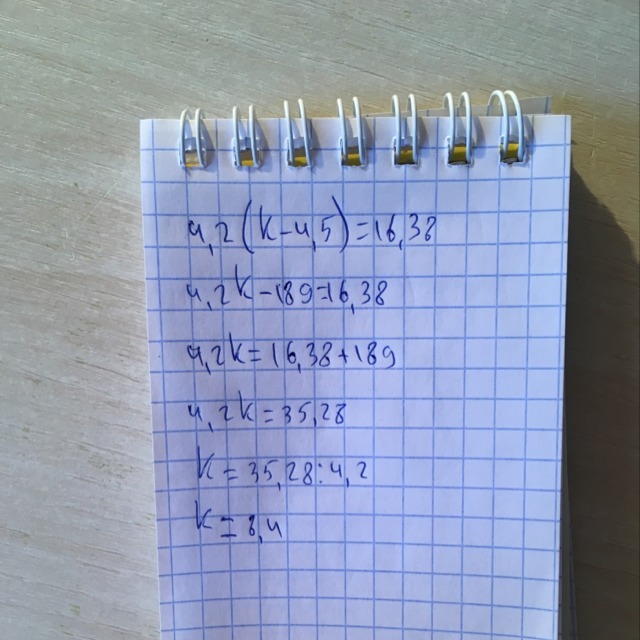 4,2(k-4,5)=16,38
4,2k-189=16,38
4,2k=16,38+189
4,2k=35,28
k=35,28:4,2
k=8,4